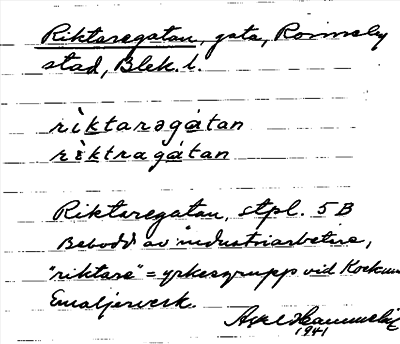 Riktaregatan, gata, Ronneby
stad, Blek. l.
rìktarəgátan
rèktragátan
Riktaregatan, stpl. 5 B
Bebodd av industriarbetare,
"riktare" = yrkesgrupp vid Kockums
Emaljerverk.
Axel
1941